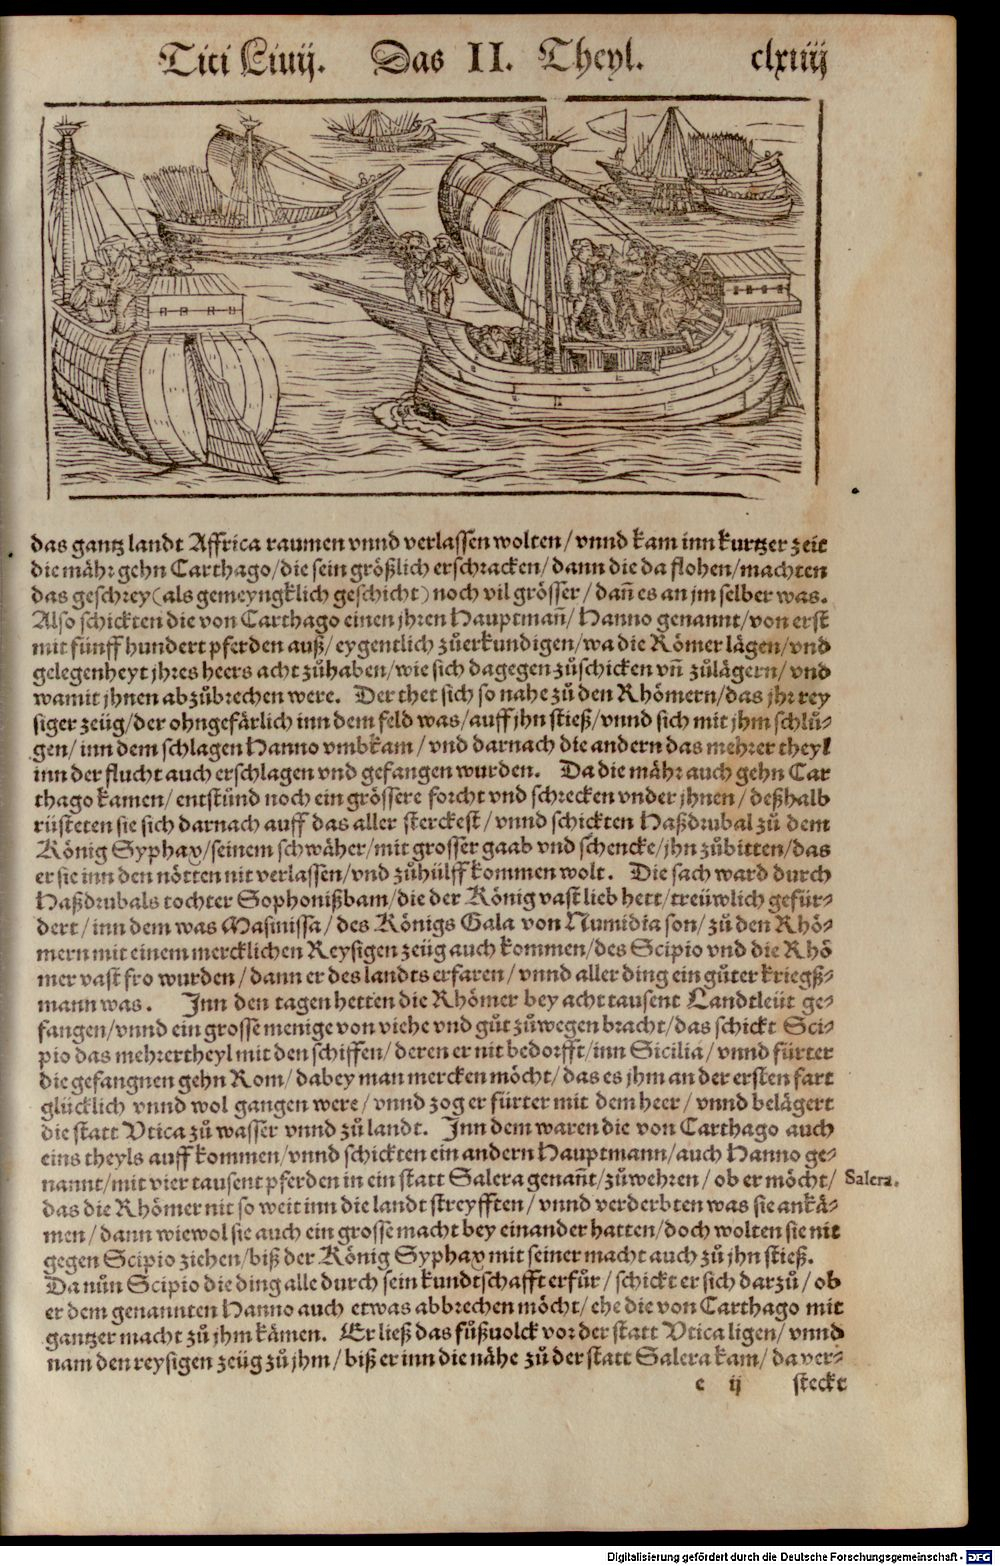 Titi Liuij. Das II. Theyl. clxiiij
das gantz landt Affrica raumen vnnd verlassen wolten/ vnnd kam inn kurtzer zeit
die mähr gehn Carthago/ die sein größlich erschracken/ dann die da flohen/ machten
das geschrey (als gemeyngklich geschicht) noch vil grösser/ dañ es an jm selber was.
Also schickten die von Carthago einen jhren Hauptmañ/ Hanno genannt/ von erst
mit fünff hundert pferden auß/ eygentlich zůerkundigen/ wa die Römer lägen/ vnd
gelegenheyt jhres heers acht zůhaben/ wie sich dagegen zůschicken vñ zůlägern/ vnd
wamit jhnen abzůbrechen were. Der thet sich so nahe zů den Rhömern/ das jhr rey
siger zeüg/ der ohngefärlich inn dem feld was/ auff jhn stieß/ vnnd sich mit jhm schlů-
gen/ inn dem schlagen Hanno vmbkam/ vnd darnach die andern das mehrer theyl
inn der flucht auch erschlagen vnd gefangen wurden. Da die mähr auch gehn Car
thago kamen/ entstůnd noch ein grössere forcht vnd schrecken vnder jhnen/ deßhalb
rüsteten sie sich darnach auff das aller sterckest/ vnnd schickten Haßdrubal zů dem
König Syphax/ seinem schwäher/ mit grosser gaab vnd schencke/ jhn zůbitten/ das
er sie inn den nötten nit verlassen/ vnd zůhülff kommen wolt. Die sach ward durch
Haßdrubals tochter Sophonißbam/ die der König vast lieb hett/ treüwlich gefür-
dert/ inn dem was Masinissa/ des Königs Gala von Numidia son/ zů den Rhö-
mern mit einem mercklichen Reysigen zeüg auch kommen/ des Scipio vnd die Rhö
mer vast fro wurden/ dann er des landts erfaren/ vnnd aller ding ein gůter kriegß-
mann was. Inn den tagen hetten die Rhömer bey acht tausent Landtleüt ge-
fangen/ vnnd ein grosse menige von viehe vnd gůt zůwegen bracht/ das schickt Sci-
pio das mehrertheyl mit den schiffen/ deren er nit bedorfft/ inn Sicilia/ vnnd fürter
die gefangnen gehn Rom/ dabey man mercken möcht/ das es jhm an der ersten fart
glücklich vnnd wol gangen were/ vnnd zog er fürter mit dem heer/ vnnd belägert
die statt Vtica zů wasser vnnd zů landt. Inn dem waren die von Carthago auch
eins theyls auff kommen/ vnnd schickten ein andern Hauptmann/ auch Hanno ge-
nannt/ mit vier tausent pferden in ein statt Salera genañt/ zůwehren/ ob er möcht/
Salera.
das die Rhömer nit so weit inn die landt streyfften/ vnnd verderbten was sie ankä-
men/ dann wiewol sie auch ein grosse macht bey einander hatten/ doch wolten sie nit
gegen Scipio ziehen/ biß der König Syphax mit seiner macht auch zů jhn stieß.
Da nůn Scipio die ding alle durch sein kundtschafft erfůr/ schickt er sich darzů/ ob
er dem genannten Hanno auch etwas abbrechen möcht/ ehe die von Carthago mit
gantzer macht zů jhm kämen. Er ließ das fůßuolck vor der statt Vtica ligen/ vnnd
nam den reysigen zeüg zů jhm/ biß er inn die nähe zů der statt Salera kam/ da ver-
e ij steckt
Digitalisierung gefördert durch die Deutsche Forschungsgemeinschaft - DFG